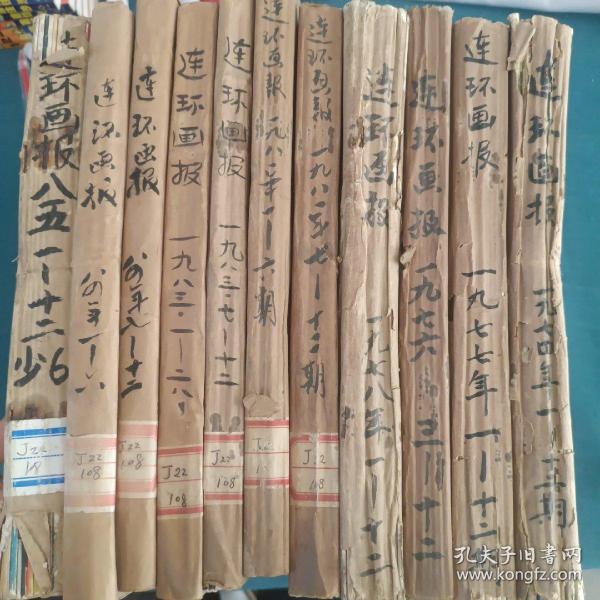 连环画报八五一-十二少6
J22
连环画报
84年一-六
J22
108
连环画报
J22
108
连环画报
一九八三·一-六
J22
108
连环画报
一九八三·七-十二
J22
108
连环画报
一九八二年一-六期
连环画报
一九八二年七-十二期
J22
108
连环画报
一九七八年一-十二
连环画报
一九七六
连环画报
一九七七年一-十二
连环画报
一九七四年
孔夫子旧书网
www.kongfz.com